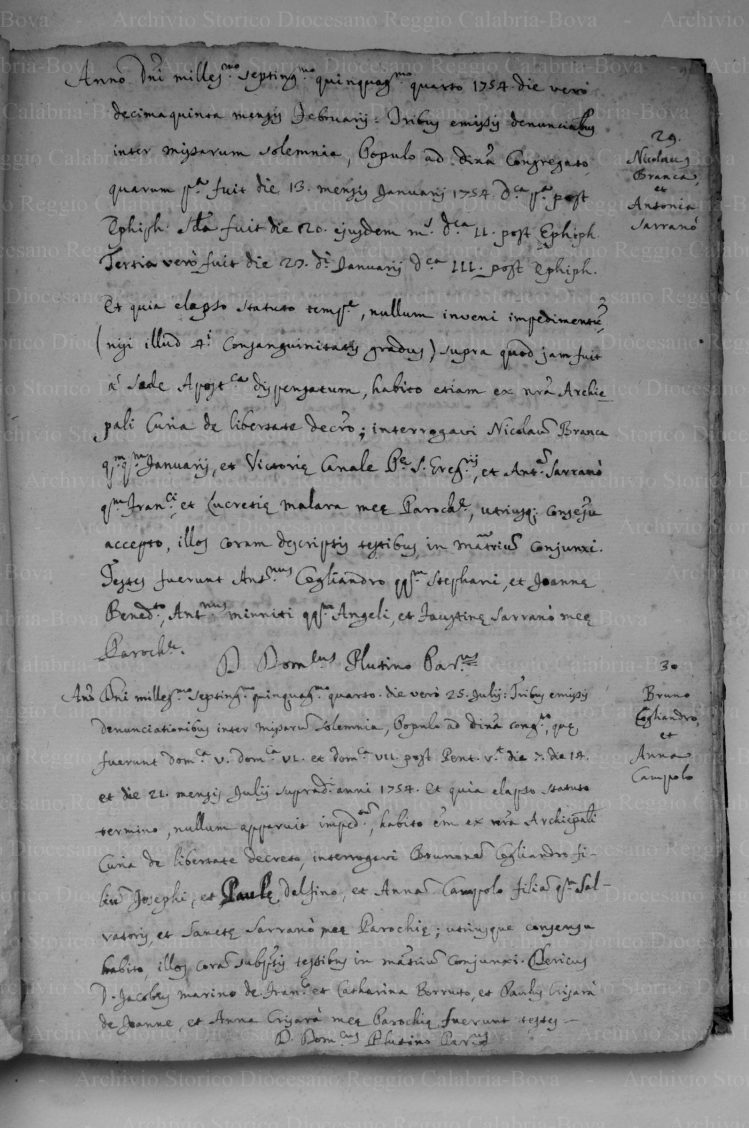 Anno Dni milles.mo septing.mo quinquag.mo quarto 1754. die vero
decimaquinta mensis Februarij. Tribus emissis denunciabus
inter missarum solemnia, Populo ad divina Congregato
quarum p.a fuit die 13. mensis Januarij 1754. D.ca p.a post
Ephiph. S.da fuit die 20. ejusdem m.s d.ca II. post Ephiph.
Tertia verò fuit die 27. d.i Januarij d.ca III. post Ephiph.
Et quia elapso statuto temp.e, nullum inveni impedimentũ,
(nisi illud 4.i Consanguinitatis gradus) supra quod jam fuit
à Sede Apost.ca dispensatum, habito etiam ex nrã Archie
pali Curia de libertate decrõ; interrogavi Nicolaũ Branca
q.m q.m Januarij, et Victorie Canale P.e S. Greg.rij, et Ant.ã Sarranò
q.m Fran.ci, et Lucretie malara mee Paroch.e, utriusq; consesu
accepto, illos coram descriptis testibus, in mãtriũ conjunxi.
Testes fuerunt Ant.nus Cogliandro qq.m Stephani, et Joanne
Bened.to, Ant.nus minniti qq.m Angeli, et Faustine Sarranò mee
Paroch.e.
D. Dom.cus Plutino Par.us
29.
Nicolaus
Branca,
et
Antonia
Sarranò
Anõ Dni milles.mo septing.mo quinquag.mo quarto. die verò 25. Julij: Tribus emissis
denunciationibus inter missarũ solemnia, Populo ad divina cong.to, que
fuerunt dom.ca V. dom.ca VI. et dom.ca VII. post Pent. v.t die 7. die 14.
et die 21. mensis Julij supradi anni 1754. Et quia elapso statuto
termino, nullum apparuit imped.tũ, habito em ex nrã Archiepali
Curia de libertate decreto, interrogavi Brunonẽ Cogliandro fi-
liũ Josephi, et Paule delfino, et Annã Campolo filiã q.m Sal-
vatoris, et Sancte Sarranò mee Parochie; utriusque consensu
habito, illos corã subsc̃ptis testibus in mãtriũ conjunxi. Clericus
D. Jacobus marino de Fran.co et Catharina Borruto, et Paulus Crisarà
de Joanne, et Anna Crisarà mee Parochie fuerunt testes -
D. Dom.cus Plutino Par.us
30
Bruno
Cogliandro,
et
Anna
Campolo
Archivio Storico Diocesano Reggio Calabria-Bova